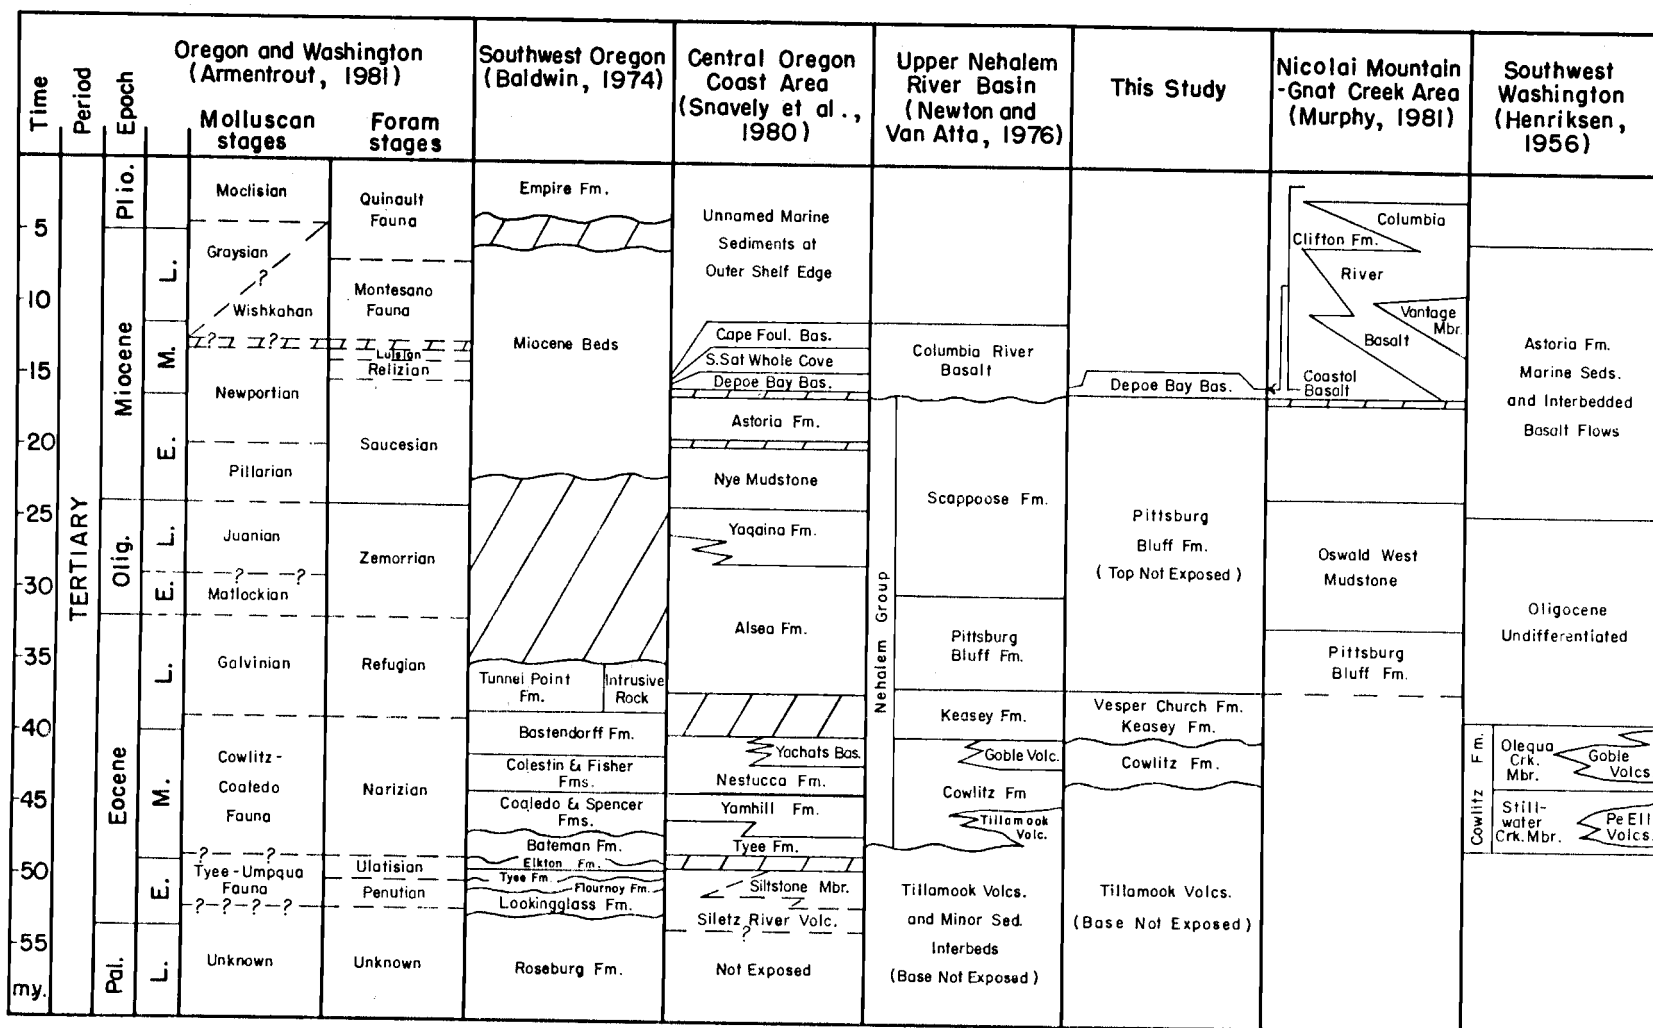 Time
Period
Epoch
Oregon and Washington
(Armentrout, 1981)
Molluscan
stages
Foram
stages
Southwest Oregon
(Baldwin, 1974)
Central Oregon
Coast Area
(Snavely et al.,
1980)
Upper Nehalem
River Basin
(Newton and
Van Atta, 1976)
This Study
Nicolai Mountain
-Gnat Creek Area
(Murphy, 1981)
Southwest
Washington
(Henriksen,
1956)
5
10
15
20
25
30
35
40
45
50
55
my.
TERTIARY
Plio.
Miocene
Olig.
Eocene
Pal.
L.
M.
E.
L.
E.
L.
M.
E.
L.
Moclisian
Graysian
?
Wishkahan
? ?
Newportian
Pillarian
Juanian
? ?
Matlockian
Galvinian
Cowlitz -
Coaledo
Fauna
? ?
Tyee - Umpqua
Fauna
? ? ? ?
Unknown
Quinault
Fauna
Montesano
Fauna
Luisian
Relizian
Saucesian
Zemorrian
Refugian
Narizian
Ulatisian
Penutian
Unknown
Empire Fm.
Miocene Beds
Tunnel Point
Fm.
Intrusive
Rock
Bastendorff Fm.
Colestin & Fisher
Fms.
Coaledo & Spencer
Fms.
Bateman Fm.
Elkton Fm.
Tyee Fm.
Flournoy Fm.
Lookingglass Fm.
Roseburg Fm.
Unnamed Marine
Sediments at
Outer Shelf Edge
Cape Foul. Bas.
S.Sat Whole Cove
Depoe Bay Bas.
Astoria Fm.
Nye Mudstone
Yaqaina Fm.
Alsea Fm.
Yachats Bas.
Nestucca Fm.
Yamhill Fm.
Tyee Fm.
Siltstone Mbr.
Siletz River Volc.
?
Not Exposed
Columbia River
Basalt
Nehalem Group
Scappoose Fm.
Pittsburg
Bluff Fm.
Keasey Fm.
Goble Volc.
Cowlitz Fm
Tillamook
Volc.
Tillamook Volcs.
and Minor Sed.
Interbeds
(Base Not Exposed)
Depoe Bay Bas.
Pittsburg
Bluff Fm.
( Top Not Exposed )
Vesper Church Fm.
Keasey Fm.
Cowlitz Fm.
Tillamook Volcs.
(Base Not Exposed)
Columbia
Clifton Fm.
River
Vantage
Mbr.
Basalt
Coastol
Basalt
Oswald West
Mudstone
Pittsburg
Bluff Fm.
Astoria Fm.
Marine Seds.
and Interbedded
Basalt Flows
Oligocene
Undifferentiated
Cowlitz Fm.
Olequa
Crk.
Mbr.
Goble
Volcs
Still-
water
Crk. Mbr.
Pe Ell
Volcs.